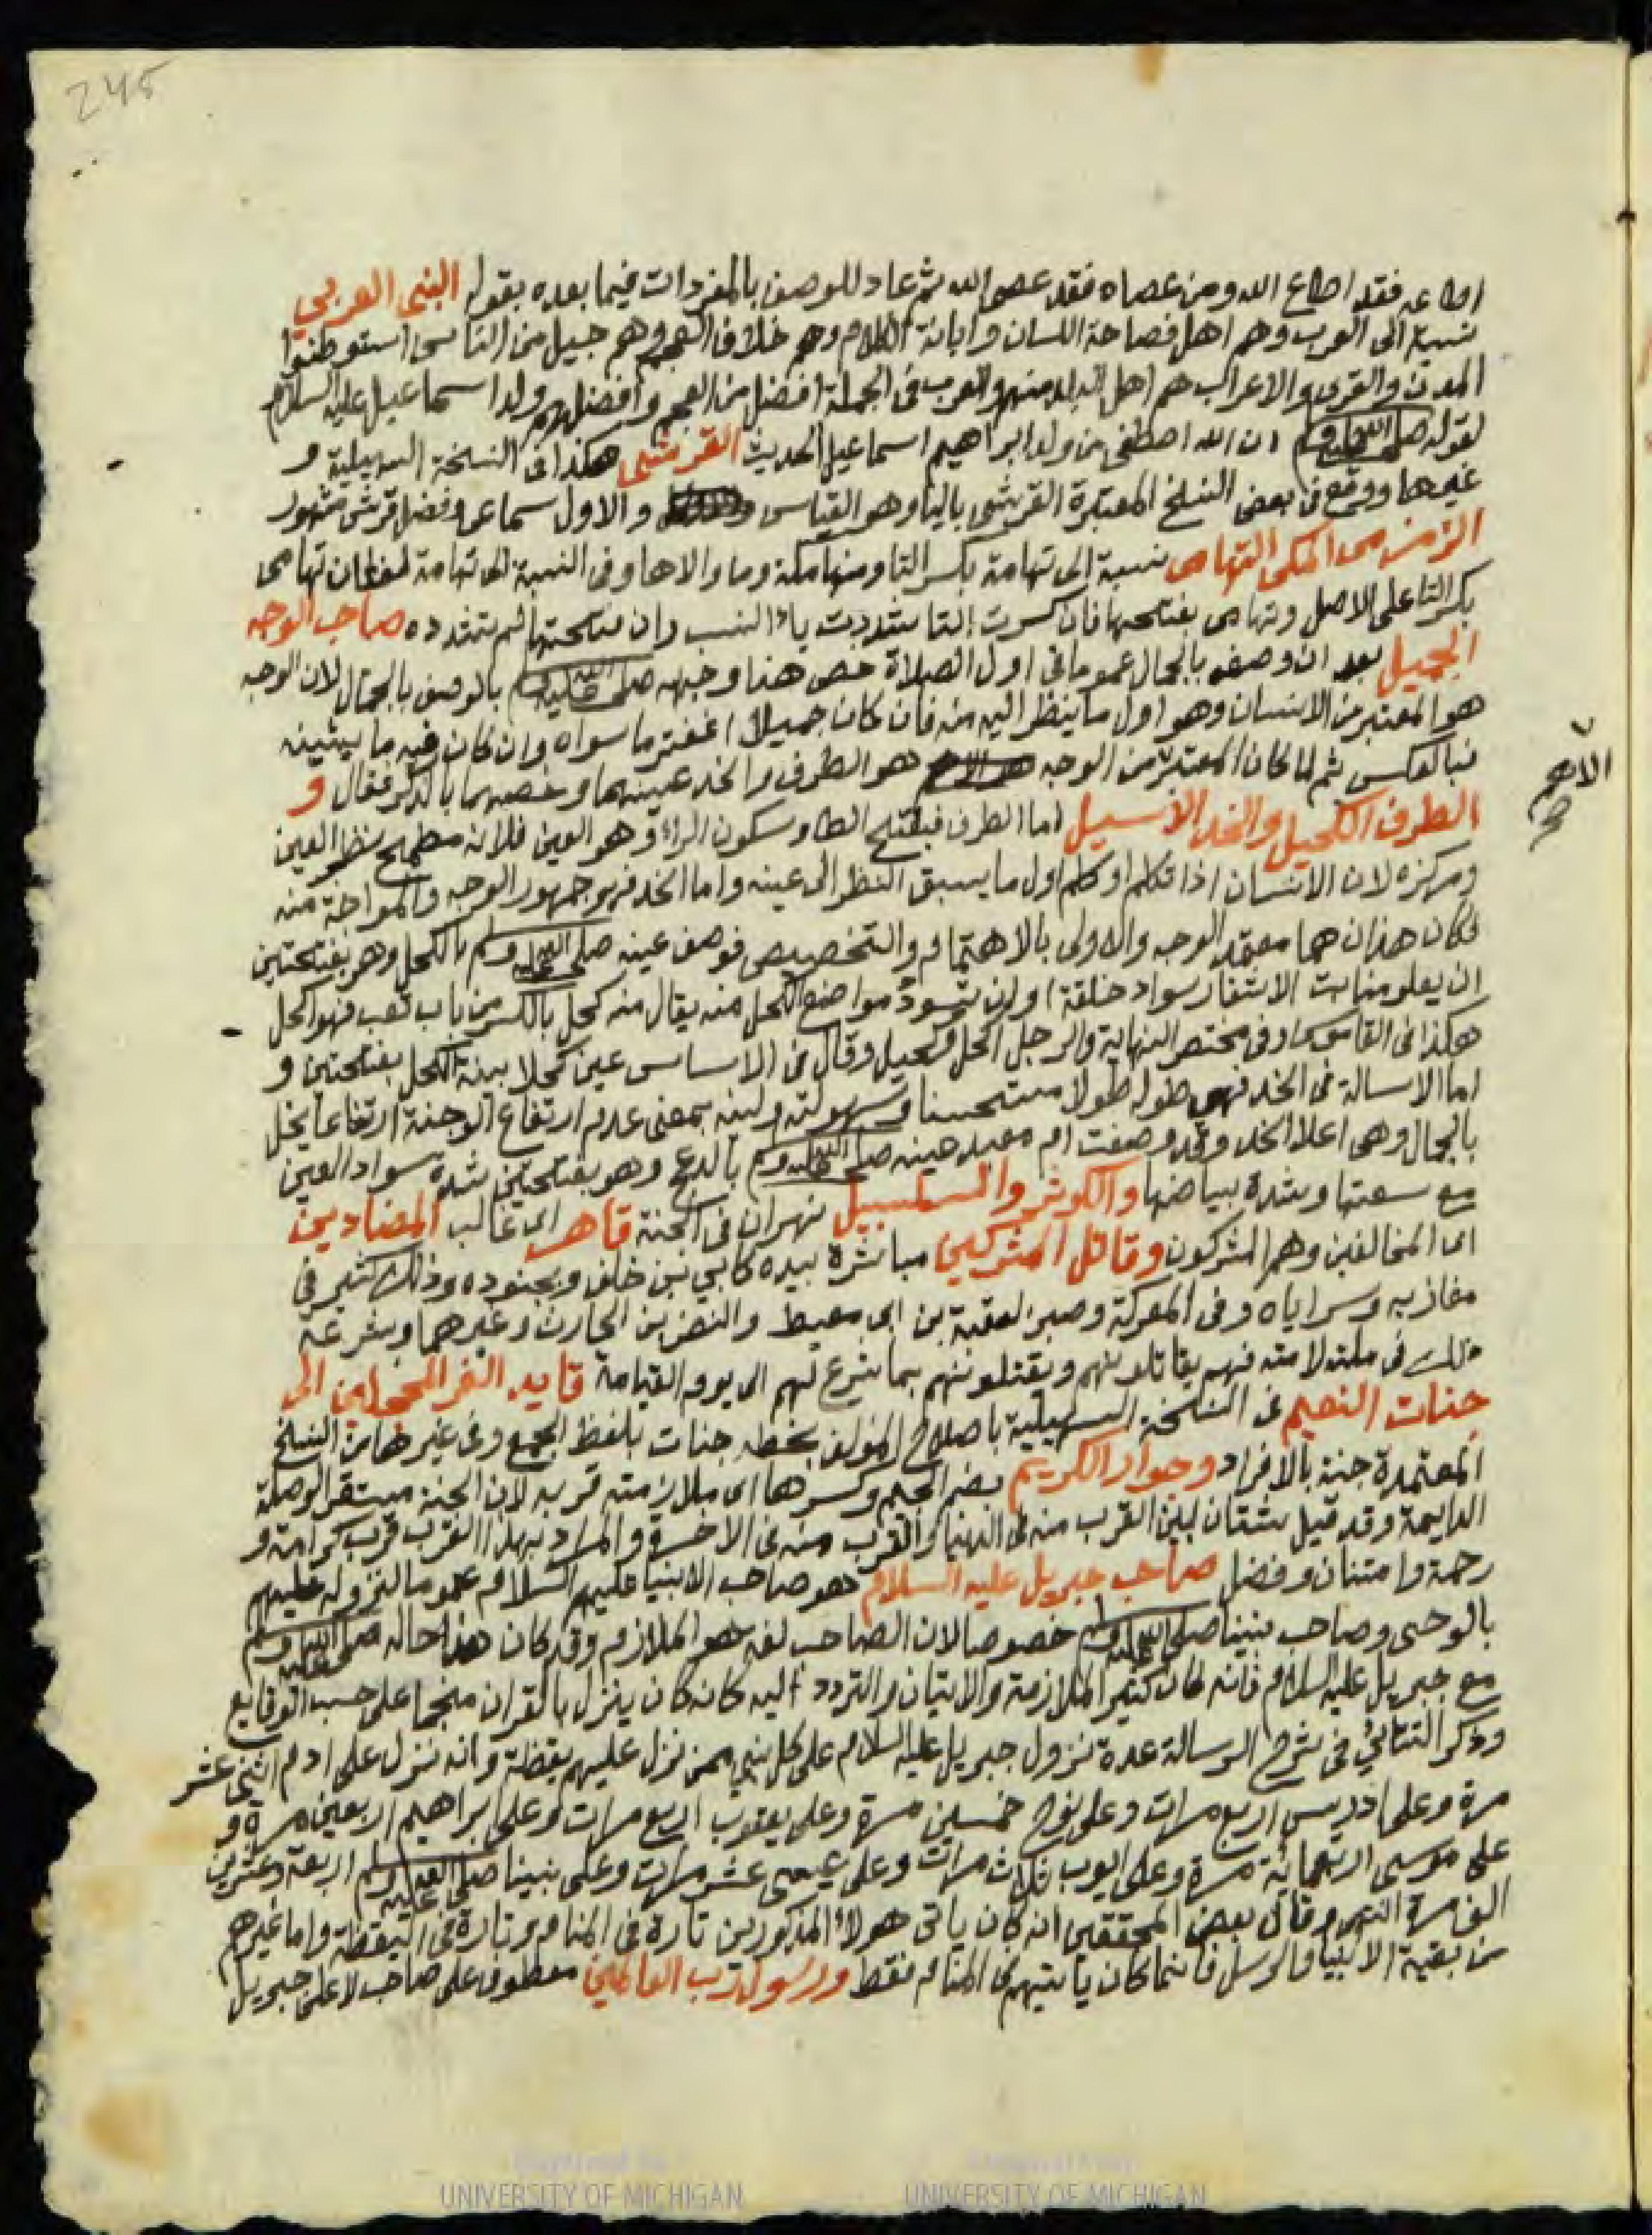 245
اطاعه فقد اطاع الله ومن عصاه فقد عصى الله ثم عاد للوصف بالمفردات فيما بعده بقوله النبى العربي
نسبة الى العرب وهم اهل فصاحة اللسان وابانة الكلام وهم خلاف العجم وهم جيل من الناس استوطنوا
المدن والقرى والاعراب هم اهل البدو منهم والعرب فى الجملة افضل من العجم وافضلهم ولد اسماعيل عليه السلام
لقوله صلى الله عليه وسلم ان الله اصطفى من ولد ابراهيم اسماعيل الحديث القرشى هكذا فى النسخة السهيلية و
غيرها ووقع فى بعض النسخ المعتبرة القريشى باليا وهو القياس والاول سماعى وفضل قريش مشهور
الزمزمى المكى التهامى نسبة الى تهامة بكسر التا ومنها مكة وما والاها وفى النسبة الى تهامة لفظان تهامى
بكسر التا على الاصل وتهامى بفتحها فان كسرت التا شددت ياء النسب وان فتحتها لم تشدده صاحب الوجه
الجميل بعد ان وصفه بالجمال عموما فى اول الصلاة خص هنا وجهه صلى الله عليه وسلم بالوصف بالجمال لان الوجه
هو المعتبر من الانسان وهو اول ما ينظر اليه منه فان كان جميلا اغتفر ما سواه وان كان فيه ما يشينه
فبالعكس ثم لما كان المعتبر من الوجه هو الطرف والخد عينهما وخصهما بالذكر فقال و
الاهم صح
الطرف الكحيل والخد الاسيل اما الطرف فبفتح الطا وسكون الراء وهو العين فلانه مطمح نظر العين
ومركزه لان الانسان اذا تكلم او كلم اول ما يسبق النظر الى عينه واما الخد فهو جمهور الوجه والمواجة منه
فكان هذان هما معتمد الوجه والاولى بالاهتمام والتخصيص فوصف عينه صلى الله عليه وسلم بالكحل وهو بفتحتين
ان يعلو منابت الاشفار سواد خلقة او ان تسود مواضع الكحل منه يقال منه كحل بالكسر من باب تعب فهو اكحل
هكذا فى القاموس وفى مختصر النهاية والرجل اكحل وكحيل وقال فى الاساس عين كحلا بينة الكحل بفتحتين و
اما الاسالة فى الخد فهي طوله طولا مستحسنا وسهولته ولينه بمعنى عدم ارتفاع الوجنة ارتفاعا يخل
بالجمال وهى اعلا الخد وقد وصفت ام معبد عينه صلى الله عليه وسلم بالدعج وهو بفتحتين شدة سواد العين
مع سعتها وشدة بياضها والكوثر والسلسبيل نهران فى الجنة قاهر اى غالب المضادين
اى المخالفين وهم المشركون وقاتل المشركين مباشرة بيده كابي بن خلف وبجنوده وذلك كثير في
مغازيه وسراياه وفى المعركة وصبر لعقبة بن ابى معيط والنضر بن الحارث وغيرهما وبشرعه
ذلك فى ملته لامته فهم يقاتلونهم ويقتلونهم بما شرع لهم الى يوم القيامة قايد الغر المحجلين الى
جنات النعيم فى النسخة السهيلية باصلاح المؤلف بخطه جنات بلفظ الجمع وفى غيرها من النسخ
المعتمدة جنة بالافراد وجوار الكريم بضم الجيم وكسرها اى ملازمته قربه لان الجنة مستقر الوصلة
الدايمة وقد قيل شتان بين القرب منه فى الدنيا والقرب منه فى الاخرة والمراد بهذا القرب قرب كرامة و
رحمة وامتنان وفضل صاحب جبريل عليه السلام هو صاحب الانبيا عليهم السلام عموما لنزوله عليهم
بالوحى وصاحب نبينا صلى الله عليه وسلم خصوصا لان الصاحب لغة هو الملازم وقد كان هذا حاله صلى الله عليه وسلم
مع جبريل عليه السلام فانه كان كثير الملازمة والاتيان والتردد اليه كانه كان ينزل بالقران منجما على حسب الوقايع
وذكر التتائي فى شرح الرسالة عدة نزول جبريل عليه السلام على كل نبي ممن نزل عليهم يقظة وانه نزل على ادم اثنى عشر
مرة وعلى ادريس اربع مرات وعلى نوح خمسين مرة وعلى يعقوب اربع مرات وعلى ابراهيم اربعين مرة و
على موسى اربعمائة مرة وعلى ايوب ثلاث مرات وعلى عيسى عشر مرات وعلى نبينا صلى الله عليه وسلم اربعة وعشرين
الف مرة انتهى وقال بعض المحققين انه كان ياتى هولاء المذكورين تارة فى المنام وتارة فى اليقظة واما غيرهم
من بقية الانبيا والرسل فانما كان ياتيهم فى المنام فقط ورسول رب العالمين معطوف على صاحب لا على جبريل
UNIVERSITY OF MICHIGAN
UNIVERSITY OF MICHIGAN